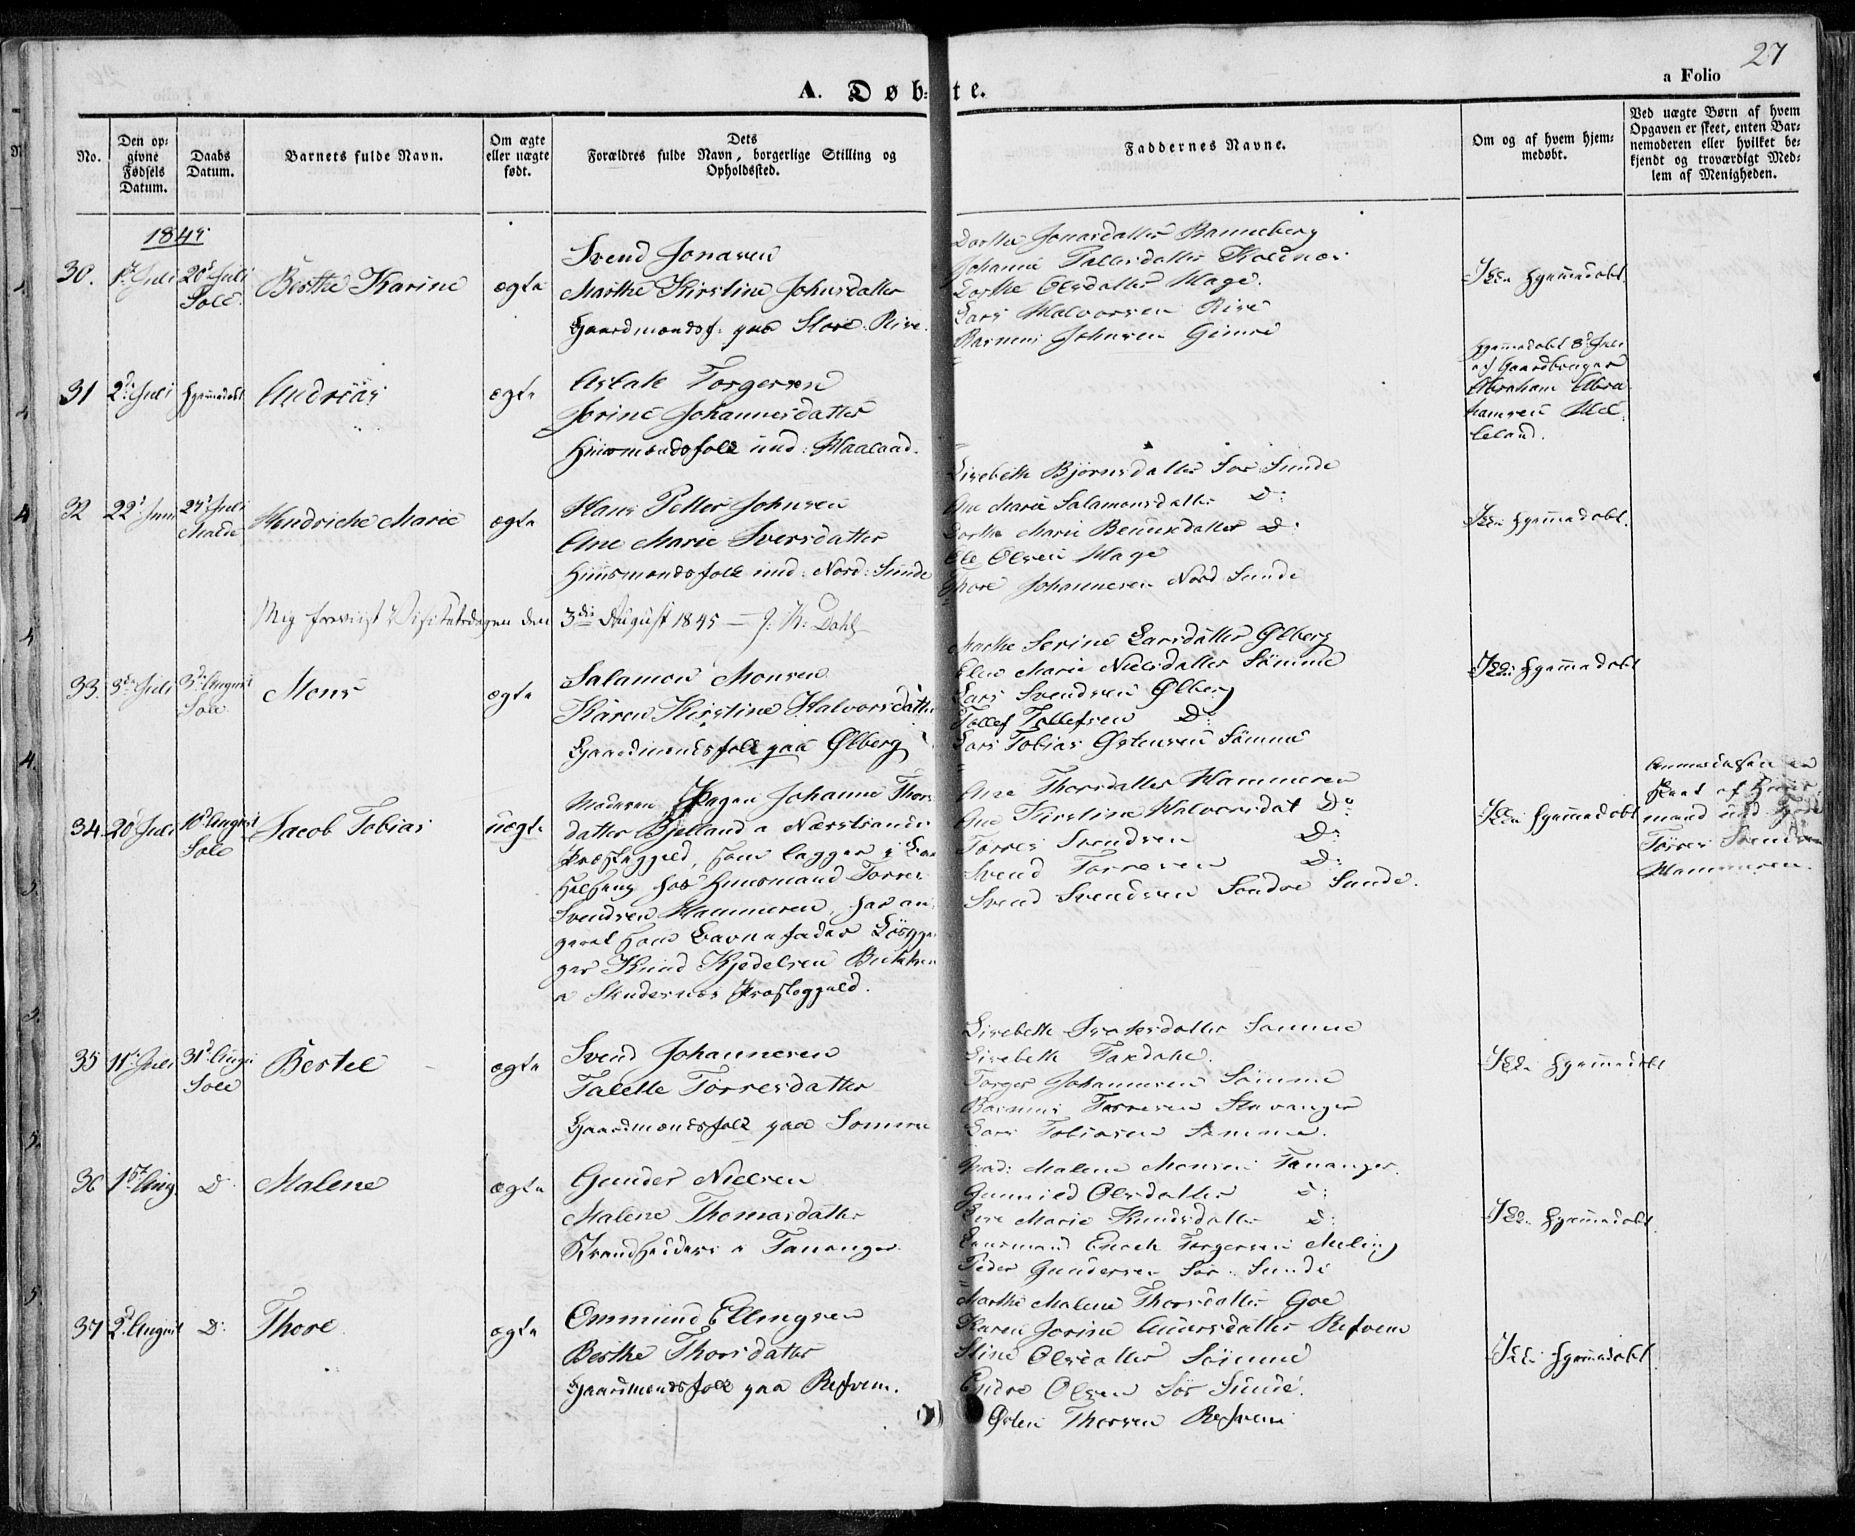 27
a Folio
A. Døb-te.
No.
Den op-
givne
Fødsels
Datum.
Daabs
Datum.
Barnets fulde Navn.
Om ægte
eller uægte
født.
Dets
Forældres fulde Navn, borgerlige Stilling og
Opholdssted.
Faddernes Navne.
Om og af hvem hjem-
medøbt.
Ved uægte Børn af hvem
Opgaven er skeet, enten Bar-
nemoderen eller hvilket be-
kjendt og troværdigt Med-
lem af Menigheden.
1845
30. 1ste Juli 20de Juli
Sole
Berthe Karine
ægte
Svend Jonasen
Marthe Kirstine Johnsdatter
Gaardmandsf. paa Store Risse
Dorthe Jonasdatter Ranneberg
Johanne Pallesdatter Kolnes
Dorthe Olsdatter Hage
Lars Halvorsen Risse
Rasmus Johnsen Gimre
Ikke hjemmedøbt.
31 2den Juli hjemmedøbt
Andreas
ægte
Aslak Torgersen
Jorine Johannesdatter
Huusmandsfolk und. Haaland.
hjemmedøbt 8de Juli
af Gaardbruger
Abraham Abra
hamsen Mel
leland.
32 22de Juni 27de Juli
Malde
Hendricke Marie
ægte
Hans Petter Johnsen
Ane Marie Iversdatter
Huusmandsfolk und. Nord. Sunde
Lisebeth Bjørnsdatter Sør Sunde
Ane Marie Salamonsdatter D:
Dorthe Marie D:
Ole Olsen Hage
Thore Johannesen Nord Sunde
Ikke hjemmedøbt.
Mig foreviist Visitatsdagen den 3die August 1845 — J. K. Dahl
33. 3de Juli 3de August
Sole
Mons
ægte
Salamon Monsen
Karen Kirstine Halvorsdatter
Gaardmandsfolk paa Ølberg
Marthe Serine Larsdatter Ølberg
Elen Marie Nielsdatter Sömme
Lars Svendsen Ølberg
Tollef Tollefsen D:
Lars Tobias Østensen Sömme
Ikke hjemmedøbt
34. 20de Juli 10de August
Sole
Jacob Tobias
uægte
Moderen Pigen Johanne Thors
datter Bjelland a Nærstrands
Præstegjeld, som ligger i
hos Huusmand Torres
Svendsen Hammeren, har an
givet som Barnefader
Knud Kjedelsen
a Skudesnæs Præstegjeld.
Ane Thorsdatter Hammeren
Ane Kirstine Halvorsdat Do
Torres Svendsen D:
Svend Torresen D:
Svend Svendsen Sondre Sunde.
Ikke hjemmedøbt
Anmeldelsen er
skeet af Huus
mand und
Törres Svendsen
Hammeren.
35 11te Juli 31te Augu
Sole
Bertel
ægte
Svend Johannesen
Talette Torresdatter
Gaardmandsfolk paa Somme
Lisebeth datter Somme
Lisebeth Taxdahl.
Torger Johannesen Sömme
Rasmus Torresen Stavanger
Lars Tobiasen Somme.
Ikke hjemmedøbt
36 1ste Aug. D.
Malene
ægte
Gunder Nielsen
Malene Thomasdatter
Strandsiddere a Tananger.
Mad: Malene Monsen Tananger.
Gunnild Olsdatter D:
Marie Knudsdatter D:
Lensmand Enoch Torgersen Meling
Peder Gundersen Sør Sunde
Ikke hjemmedøbt.
37 2den August D:
Thore
ægte
Ommund Ellingsen
Berthe Thorsdatter
Gaardmandsfolk paa Refvem.
Marthe Malene Thorsdatter Goe
Karen Jorine Refvem
Stine Olsdatter Sömme
Endre Olsen Sør Sunde.
Østen Thorsen Refvem
Ikke hjemmedøbt.